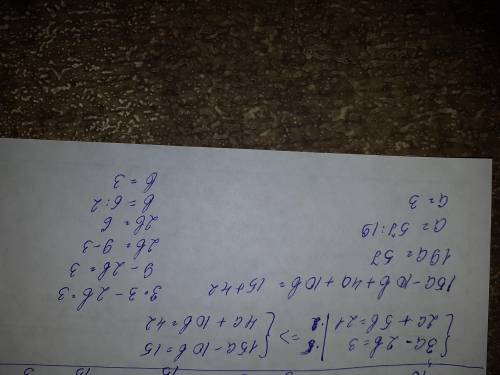 {3a - 2b = 3 |·5 => {15a - 10b = 15
{2a + 5b = 21 |·2 {4a + 10b = 42
15a - 10b + 4a + 10b = 15 + 42
19a = 57
a = 57 : 19
a = 3
3·3 - 2b = 3
9 - 2b = 3
2b = 9 - 3
2b = 6
b = 6 : 2
b = 3